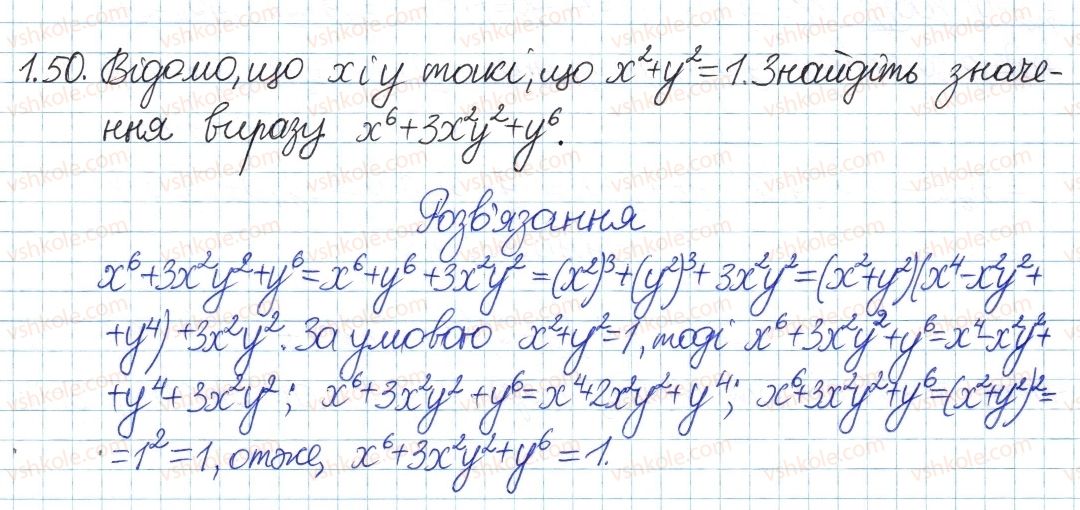 1.50. Відомо, що x і y такі, що x²+y²=1. Знайдіть значе-
ння виразу x⁶+3x²y²+y⁶.
Розв'язання
x⁶+3x²y²+y⁶=x⁶+y⁶+3x²y²=(x²)³+(y²)³+3x²y²=(x²+y²)(x⁴-x²y²+
+y⁴)+3x²y². За умовою x²+y²=1, тоді x⁶+3x²y²+y⁶=x⁴-x²y²+
+y⁴+3x²y²; x⁶+3x²y²+y⁶=x⁴+2x²y²+y⁴; x⁶+3x²y²+y⁶=(x²+y²)²=
=1²=1, отже, x⁶+3x²y²+y⁶=1.